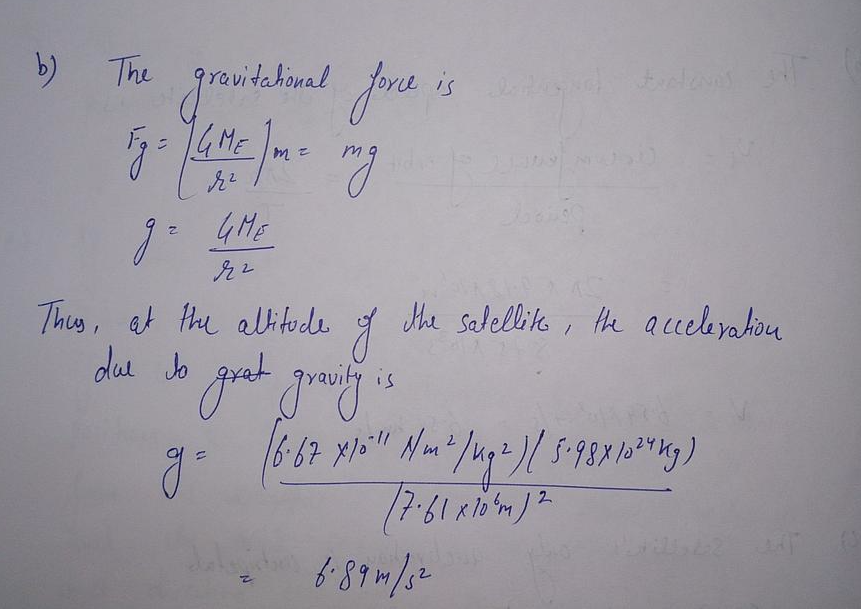 b) The gravitational force is
Fg = [GME / r²] m = mg
g = GME / r²
Thus, at the altitude of the satellite, the acceleration
due to grat gravity is
g = (6.67 x10⁻¹¹ Nm²/kg²)(5.98x10²⁴kg)
(7.61x10⁶m)²
= 6.89m/s²